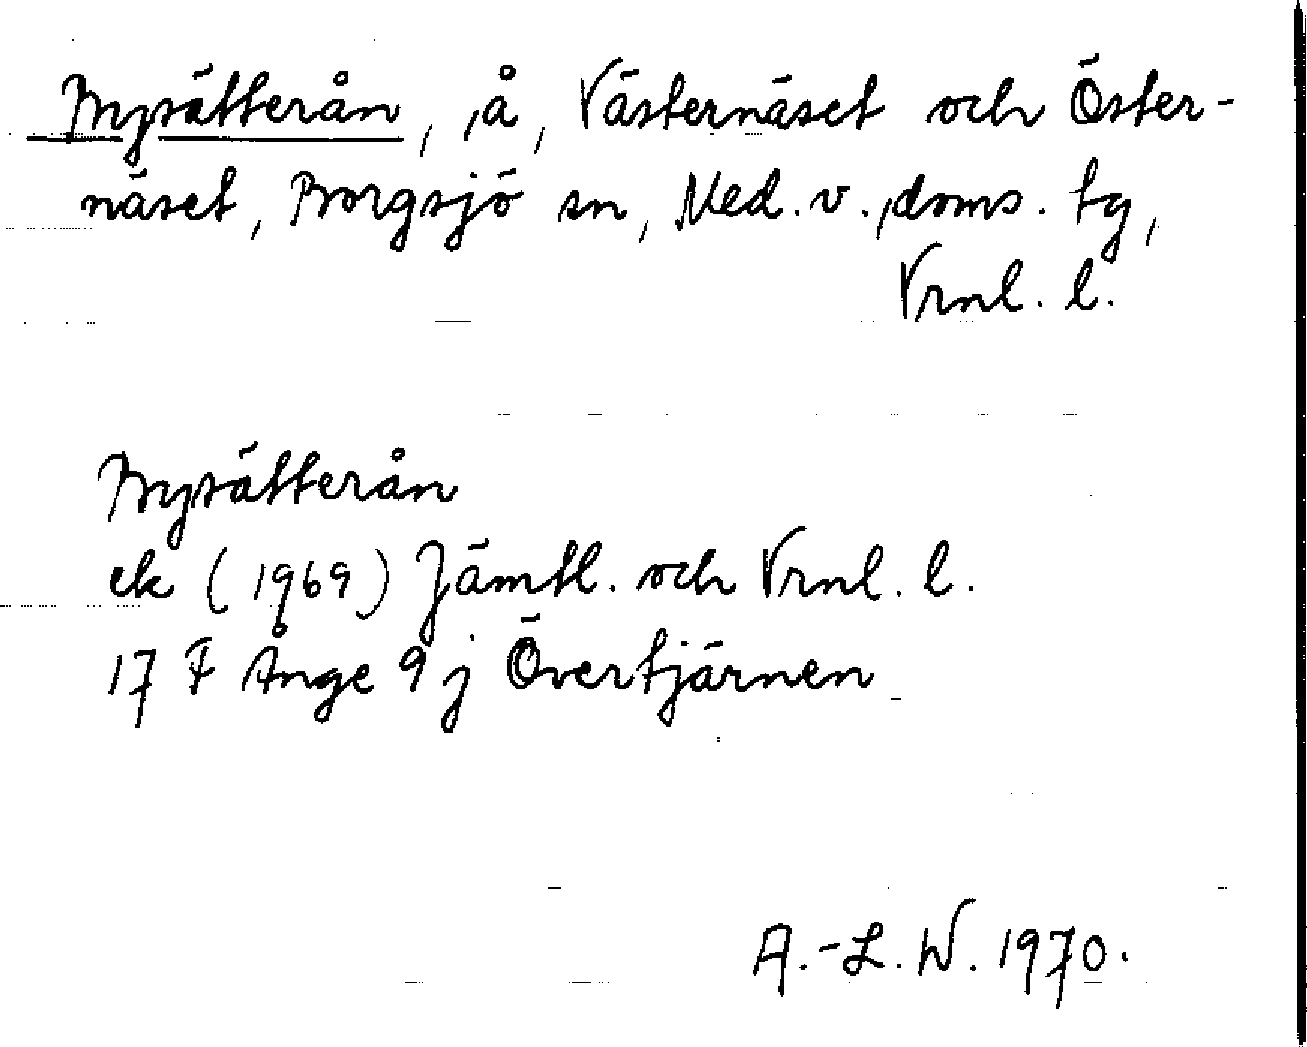 Bysätterån, å, Västernäset och Öster-
näset, Borgsjö sn, Med. v., doms. tg,
Vrnl. l.
Bysätterån
ek (1969) Jämtl. och Vrnl. l.
17 F Ånge 9 j Övertjärnen
A.-L. W. 1970.